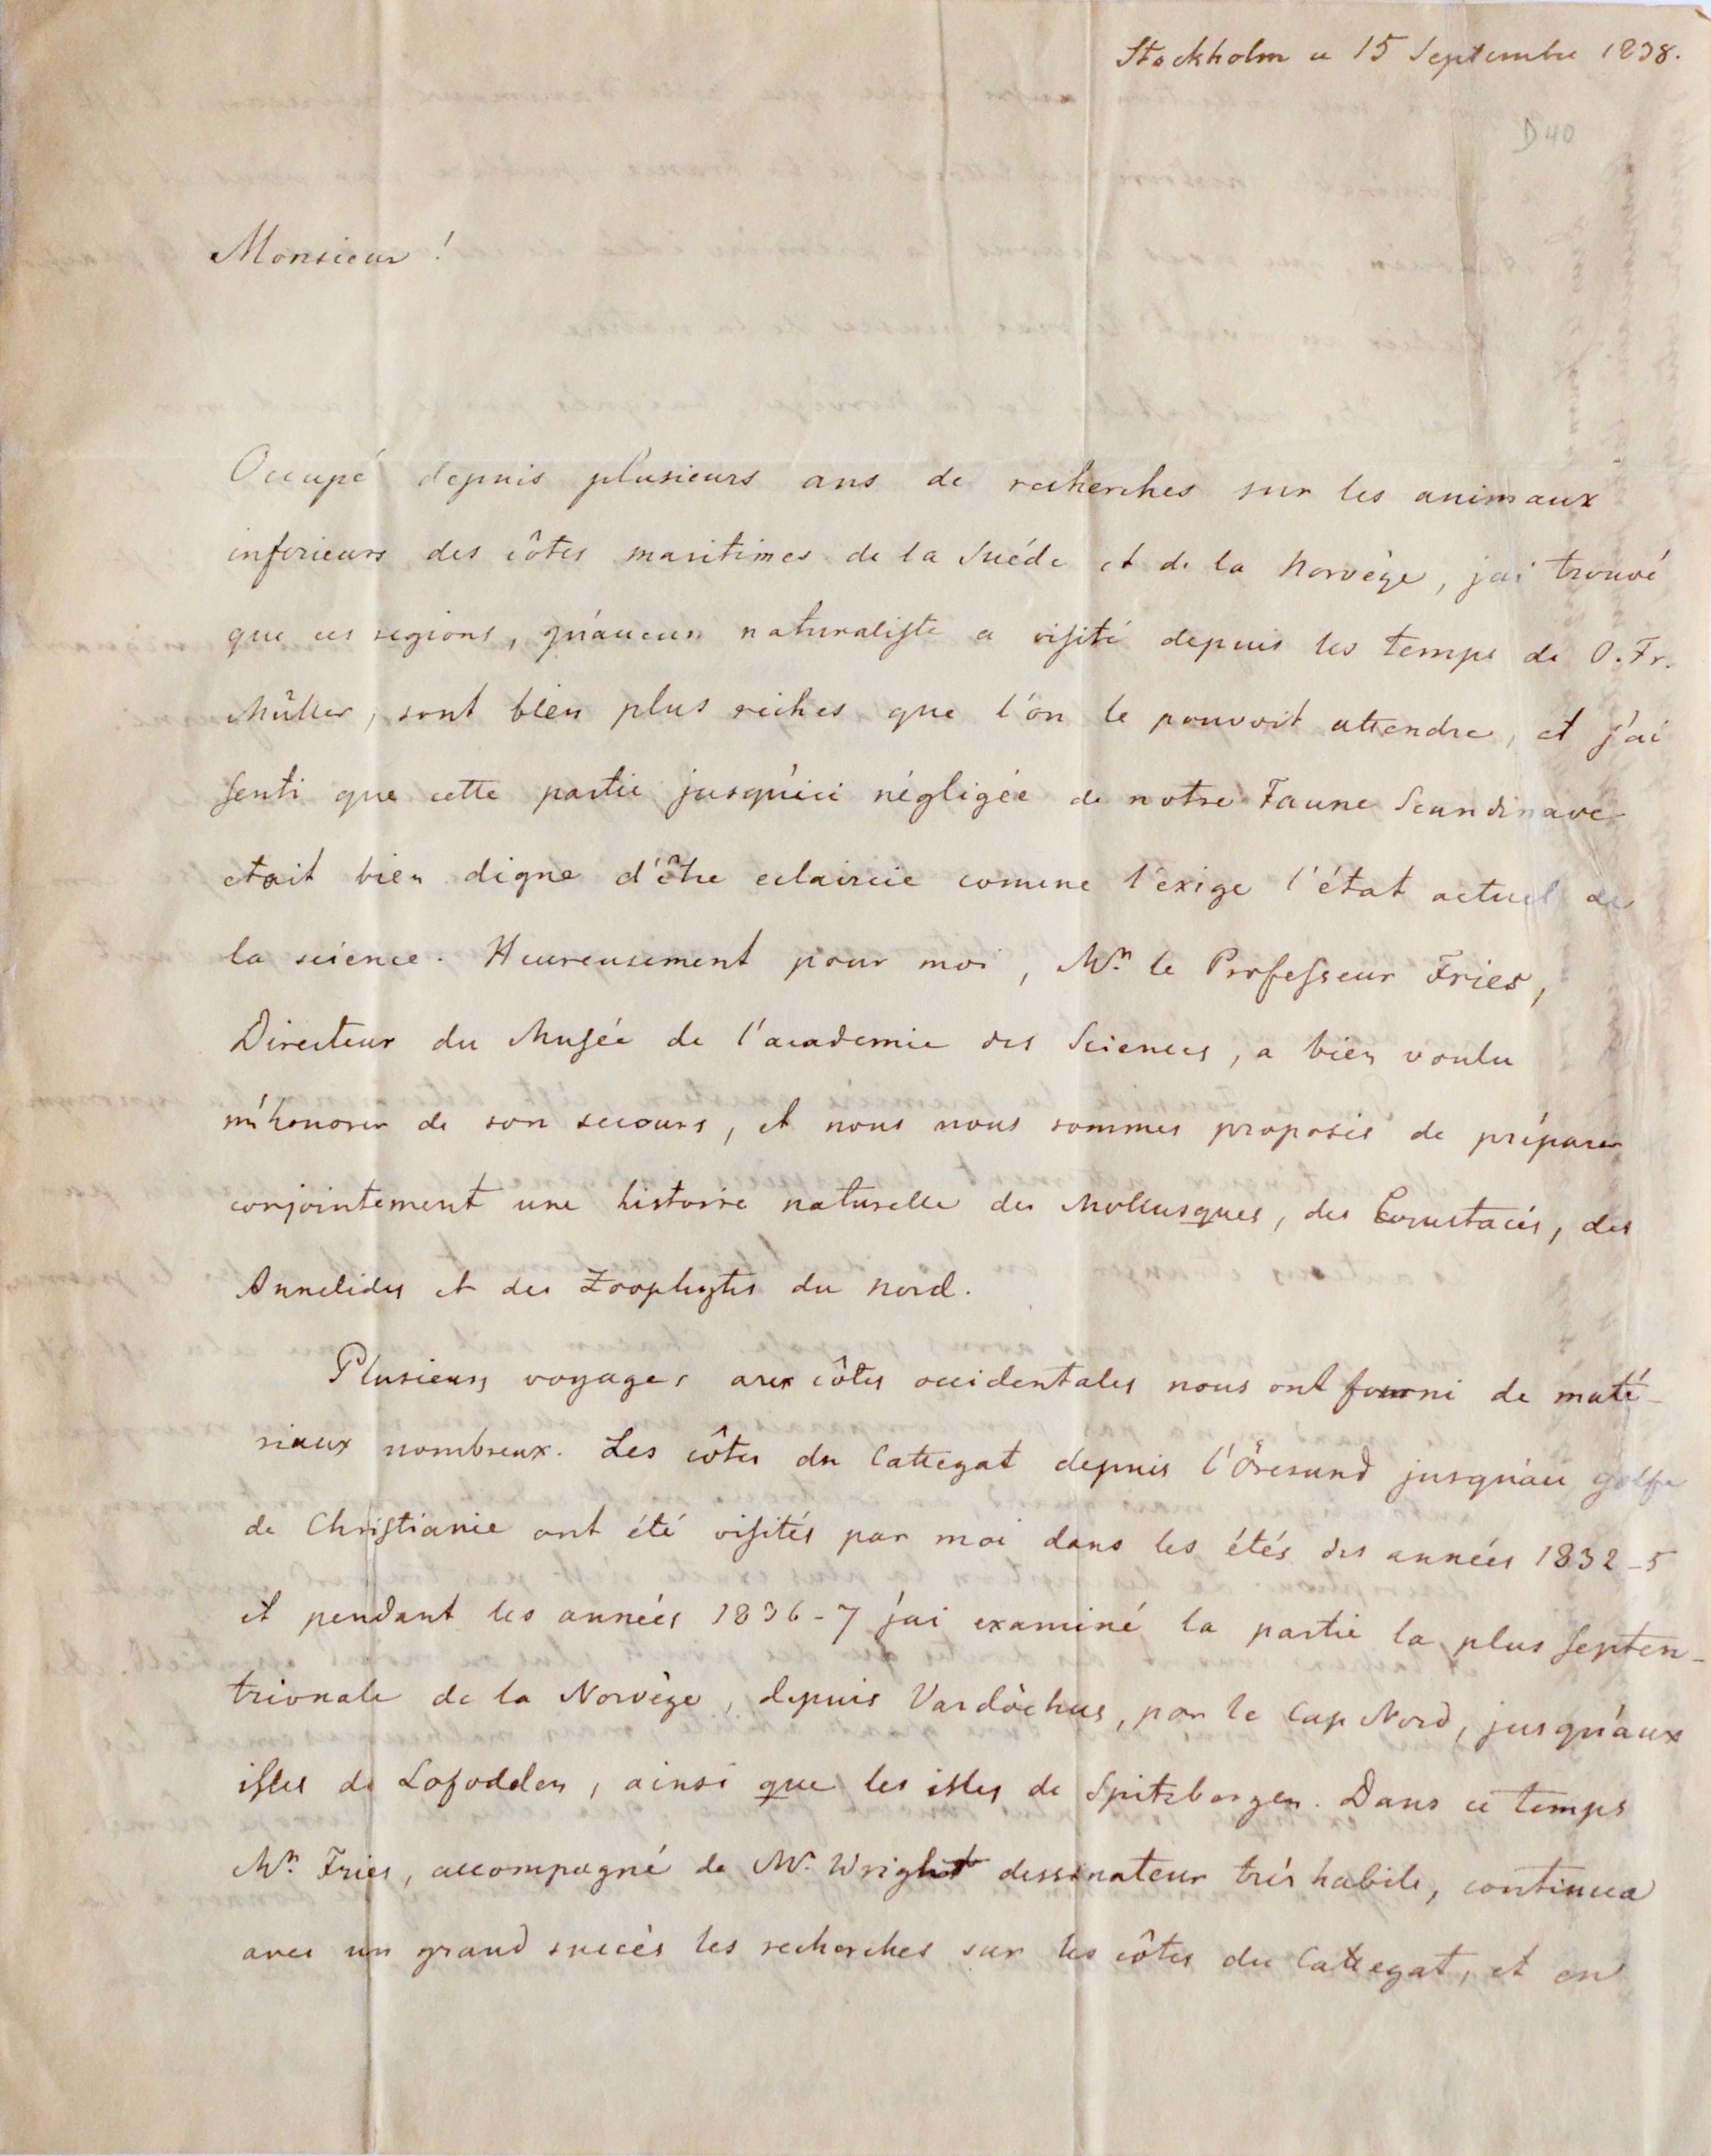 Stockholm ce 15 Septembre 1838.
D40
Monsieur !
Occupé depuis plusieurs ans de recherches sur les animaux
inferieurs des côtes maritimes de la Suéde et de la Norvège, j'ai trouvé
que ces regions, qu'aucun naturaliste a visité depuis les temps de O. Fr.
Müller, sont bien plus riches que l'on le pouvoit attendre, et j'ai
senti que cette partie jusqu'ici négligée de notre Faune Scandinave
etait bien digne d'être eclaircie comme l'exige l'état actuel de
la science. Heureusement pour moi, Mr. le Professeur Fries,
Directeur du Musée de l'academie des Sciences, a bien voulu
m'honorer de son secours, et nous nous sommes proposés de préparer
conjointement une histoire naturelle des Mollusques, des Crustacés, des
Annelides et des Zoophytes du Nord.
Plusieurs voyages aux côtes occidentales nous ont fourni de maté-
riaux nombreux. Les côtes du Cattegat depuis l'Öresund jusqu'au golfe
de Christianie ont été visités par moi dans les étés des années 1832-5
et pendant les années 1836-7 j'ai examiné la partie la plus septen-
trionale de la Norvège, depuis Vardöehus, par le Cap Nord, jusqu'aux
isles de Lofodden, ainsi que les isles de Spitzbergen. Dans ce temps
Mr. Fries, accompagné de Mr. Wright dessinateur très habile, continua
avec un grand succès les recherches sur les côtes du Cattegat, et en